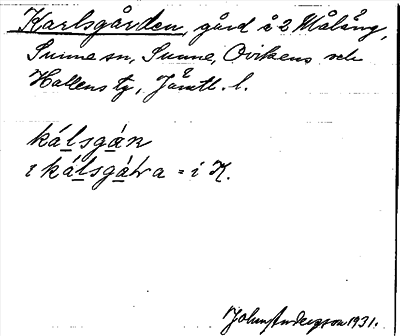 Karlsgården, gård å 2 Målång,
Sunne sn, Sunne, Ovikens och
Hallens tg, Jämtl. l.
kálsgán
i kálsgátra = i K.
John Anderzon 1931.